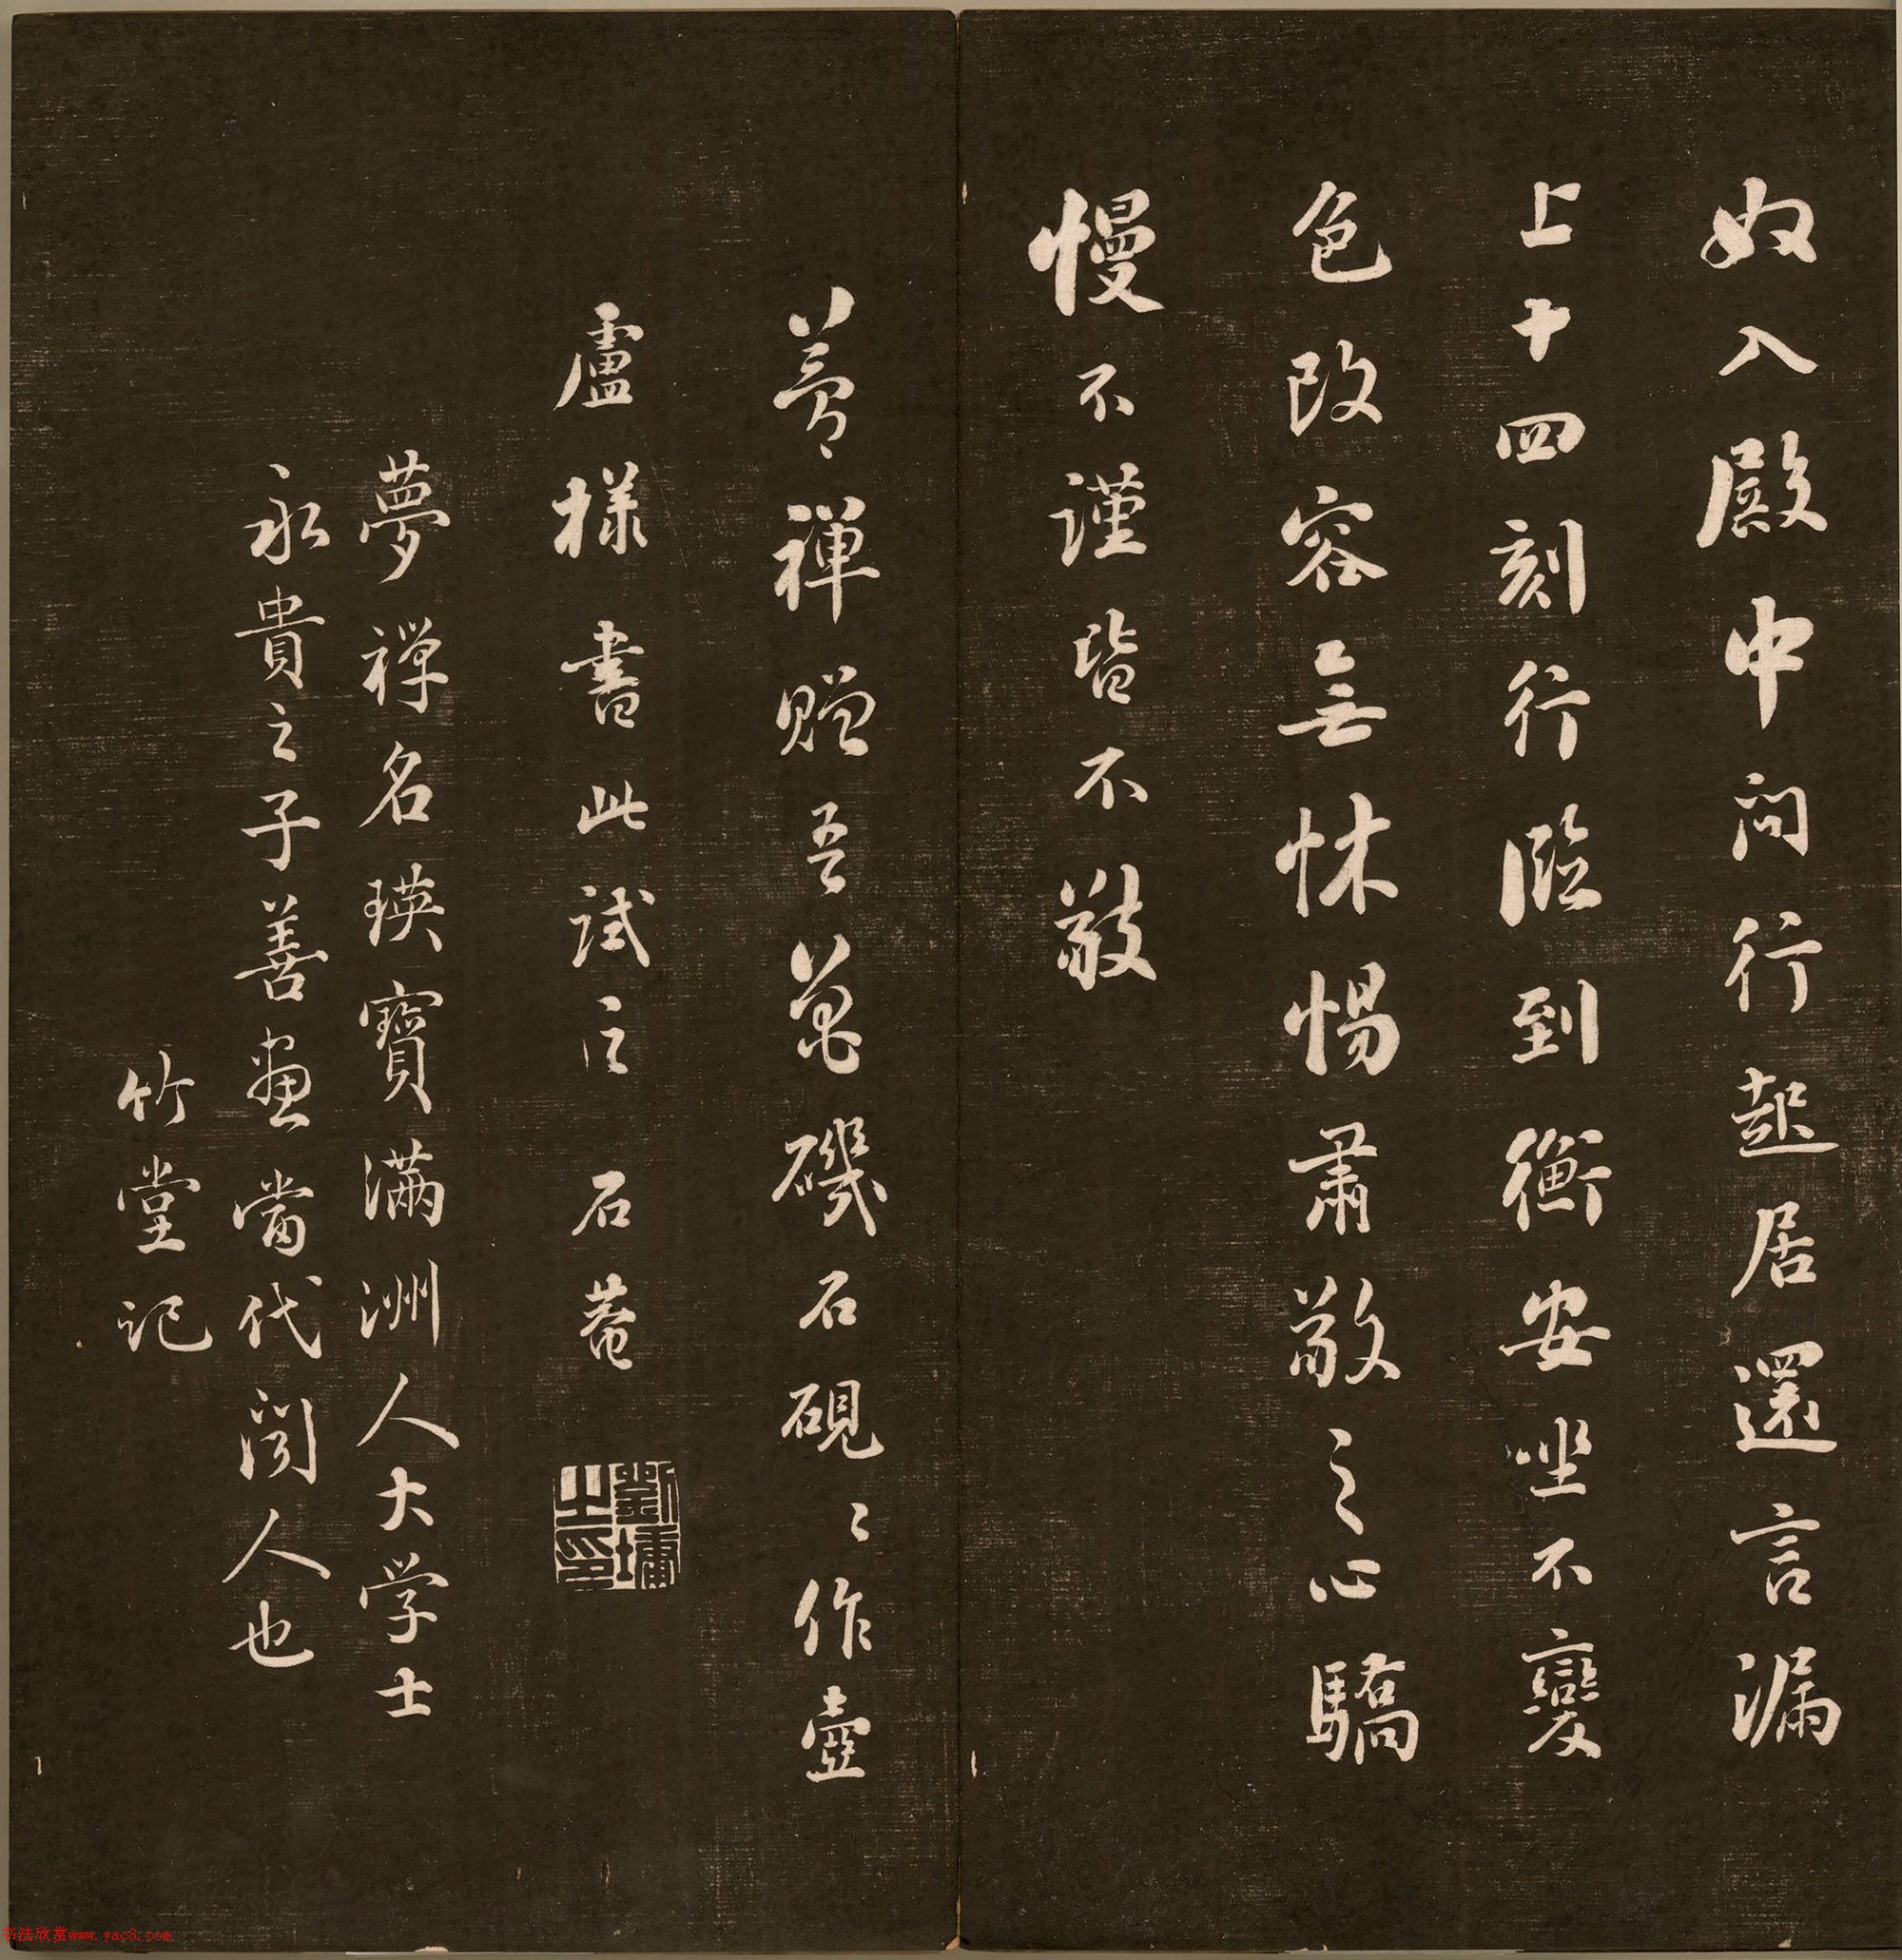 奴入殿中问行起居還言漏
上十四刻行臨到衡安坐不變
色改容無怵惕肅敬之心驕
慢不謹皆不敬
夢禪贈吾黿磯石硯〻作壺
盧樣書此試之 石菴
劉墉之印
夢禪名瑛寶满洲人大学士
永貴之子善畫當代闻人也
竹堂记
书法欣赏www.yac8.com